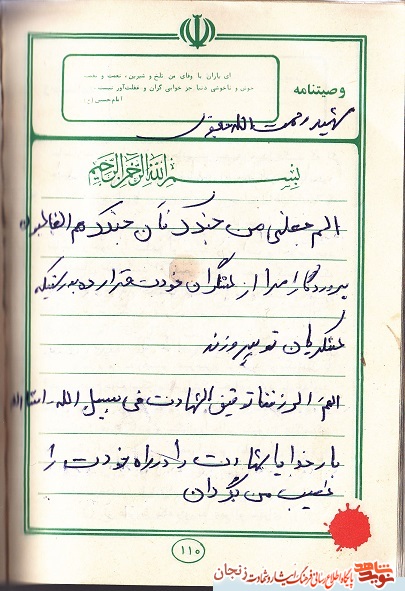 ای یاران با وفای من تلخ و شیرین، نعمت و نقمت
خوشی و ناخوشی دنیا جز خوابی گران و غفلت‌آور
امام حسین (ع)
وصیتنامه
شهید رحمت الله
بسم الله الرحمن الرحیم
الهم جعلنی من جندک فأن جندک هم الغالبون
پروردگارا مرا از لشگریان خودت قرار ده بدرستیکه
لشگریان تو پیروزند
الهم الرزقنا توفیق الشهادت فی سبیل الله - انشاالله
بار خدایا شهادت را در راه خودت را
نصیب من بگردان
۱۱۰
نوید شاهد
پایگاه اطلاع رسانی فرهنگ ایثار و شهادت زنجان